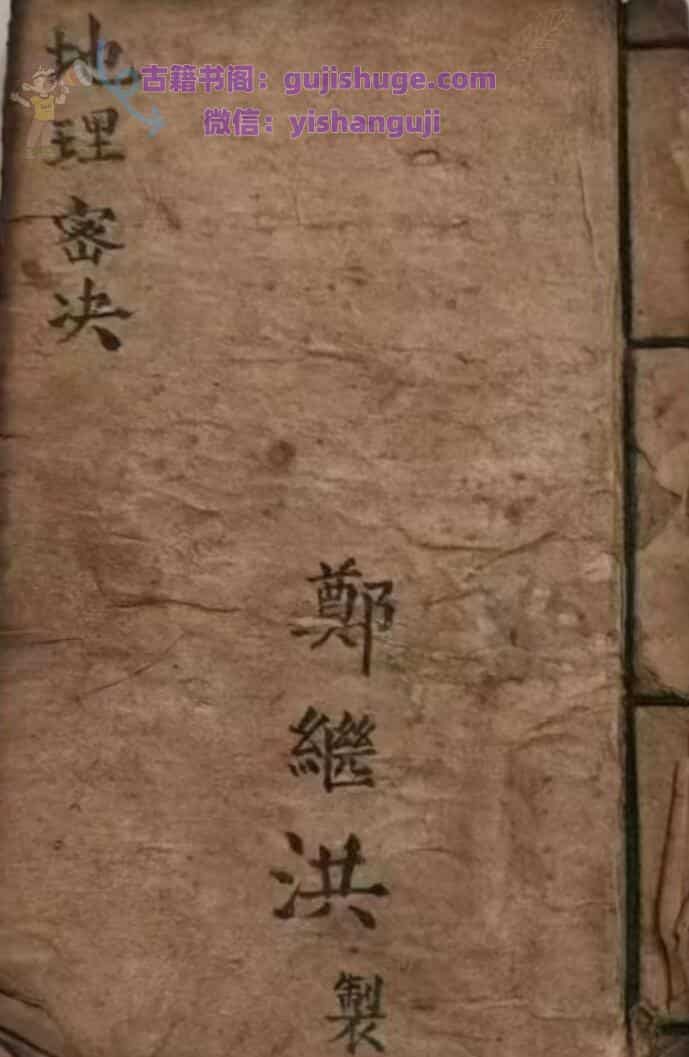 古籍书阁：gujishuge.com
微信：yishanguji
地理密决
鄭繼洪製